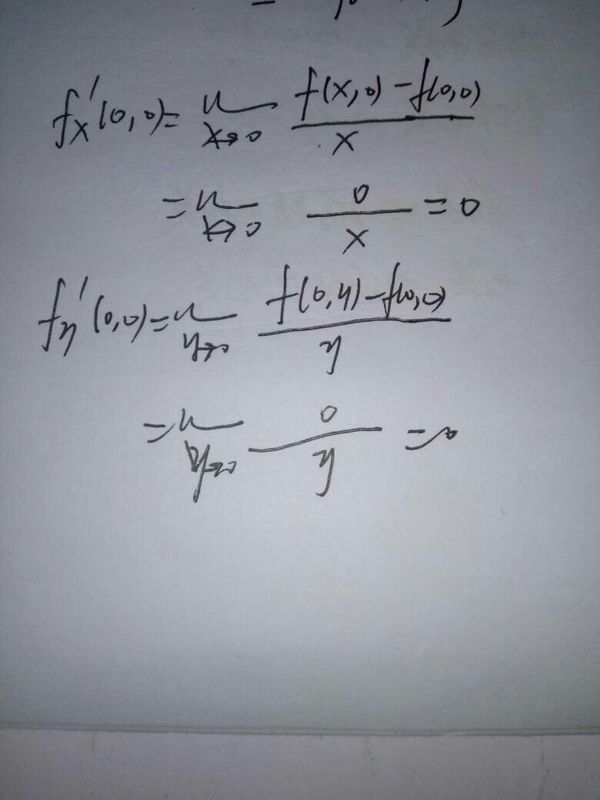 fx'(0,0)= lim x→0 f(x,0)-f(0,0) / x
= lim x→0 0 / x = 0
fy'(0,0)= lim y→0 f(0,y)-f(0,0) / y
= lim y→0 0 / y = 0